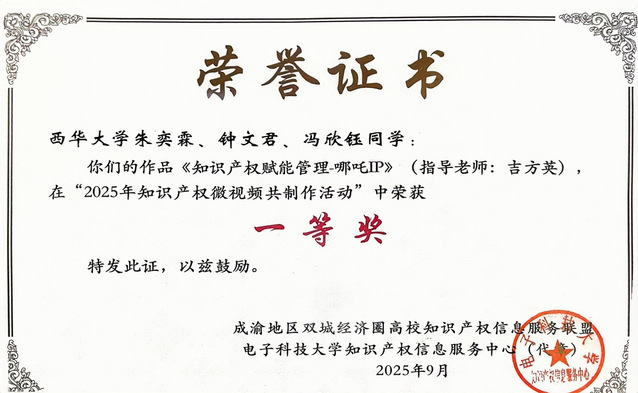 荣誉证书
西华大学朱奕霖、钟文君、冯欣钰同学：
你们的作品《知识产权赋能管理-哪吒IP》（指导老师：吉方英），
在“2025年知识产权微视频共制作活动”中荣获
一等奖
特发此证，以兹鼓励。
成渝地区双城经济圈高校知识产权信息服务联盟
电子科技大学知识产权信息服务中心（代章）
2025年9月
电子科技大学
知识产权信息服务中心